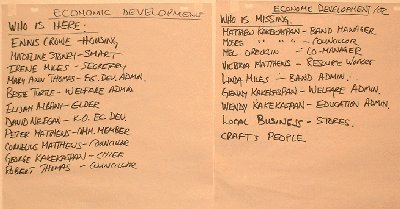 ECONOMIC DEVELOPMENT
WHO IS HERE:
ENNIS CROWE - HOUSING
MADELINE SIDNEY - SMART
IRENE MILES - SECRETARY
MARY ANN THOMAS - EC. DEV. ADMIN.
BESSIE TURTLE - WELFARE ADMIN
ELIJAH ALBANY - ELDER
DAVID NEEGAN - K.O. EC. DEV.
PETER MATTHEWS - COMM. MEMBER
CORNELIUS MATTHEWS - COUNCILLOR
GEORGE KAKEKAPHAN - CHIEF
ROBERT THOMAS - COUNCILLOR
ECONOMIC DEVELOPMENT
WHO IS MISSING.
MATTHEW KAKEKAPHAN - BAND MANAGER
MOSES " " - COUNCILLOR
MEL - CO-MANAGER
VICTORIA MATTHEWS - RESOURCE WORKER
LINDA MILES - BAND ADMIN.
GENNY KAKEKAPHAN - WELFARE ADMIN.
WENDY KAKEKAPHAN - EDUCATION ADMIN.
LOCAL BUSINESS - STORES.
CRAFTS PEOPLE.